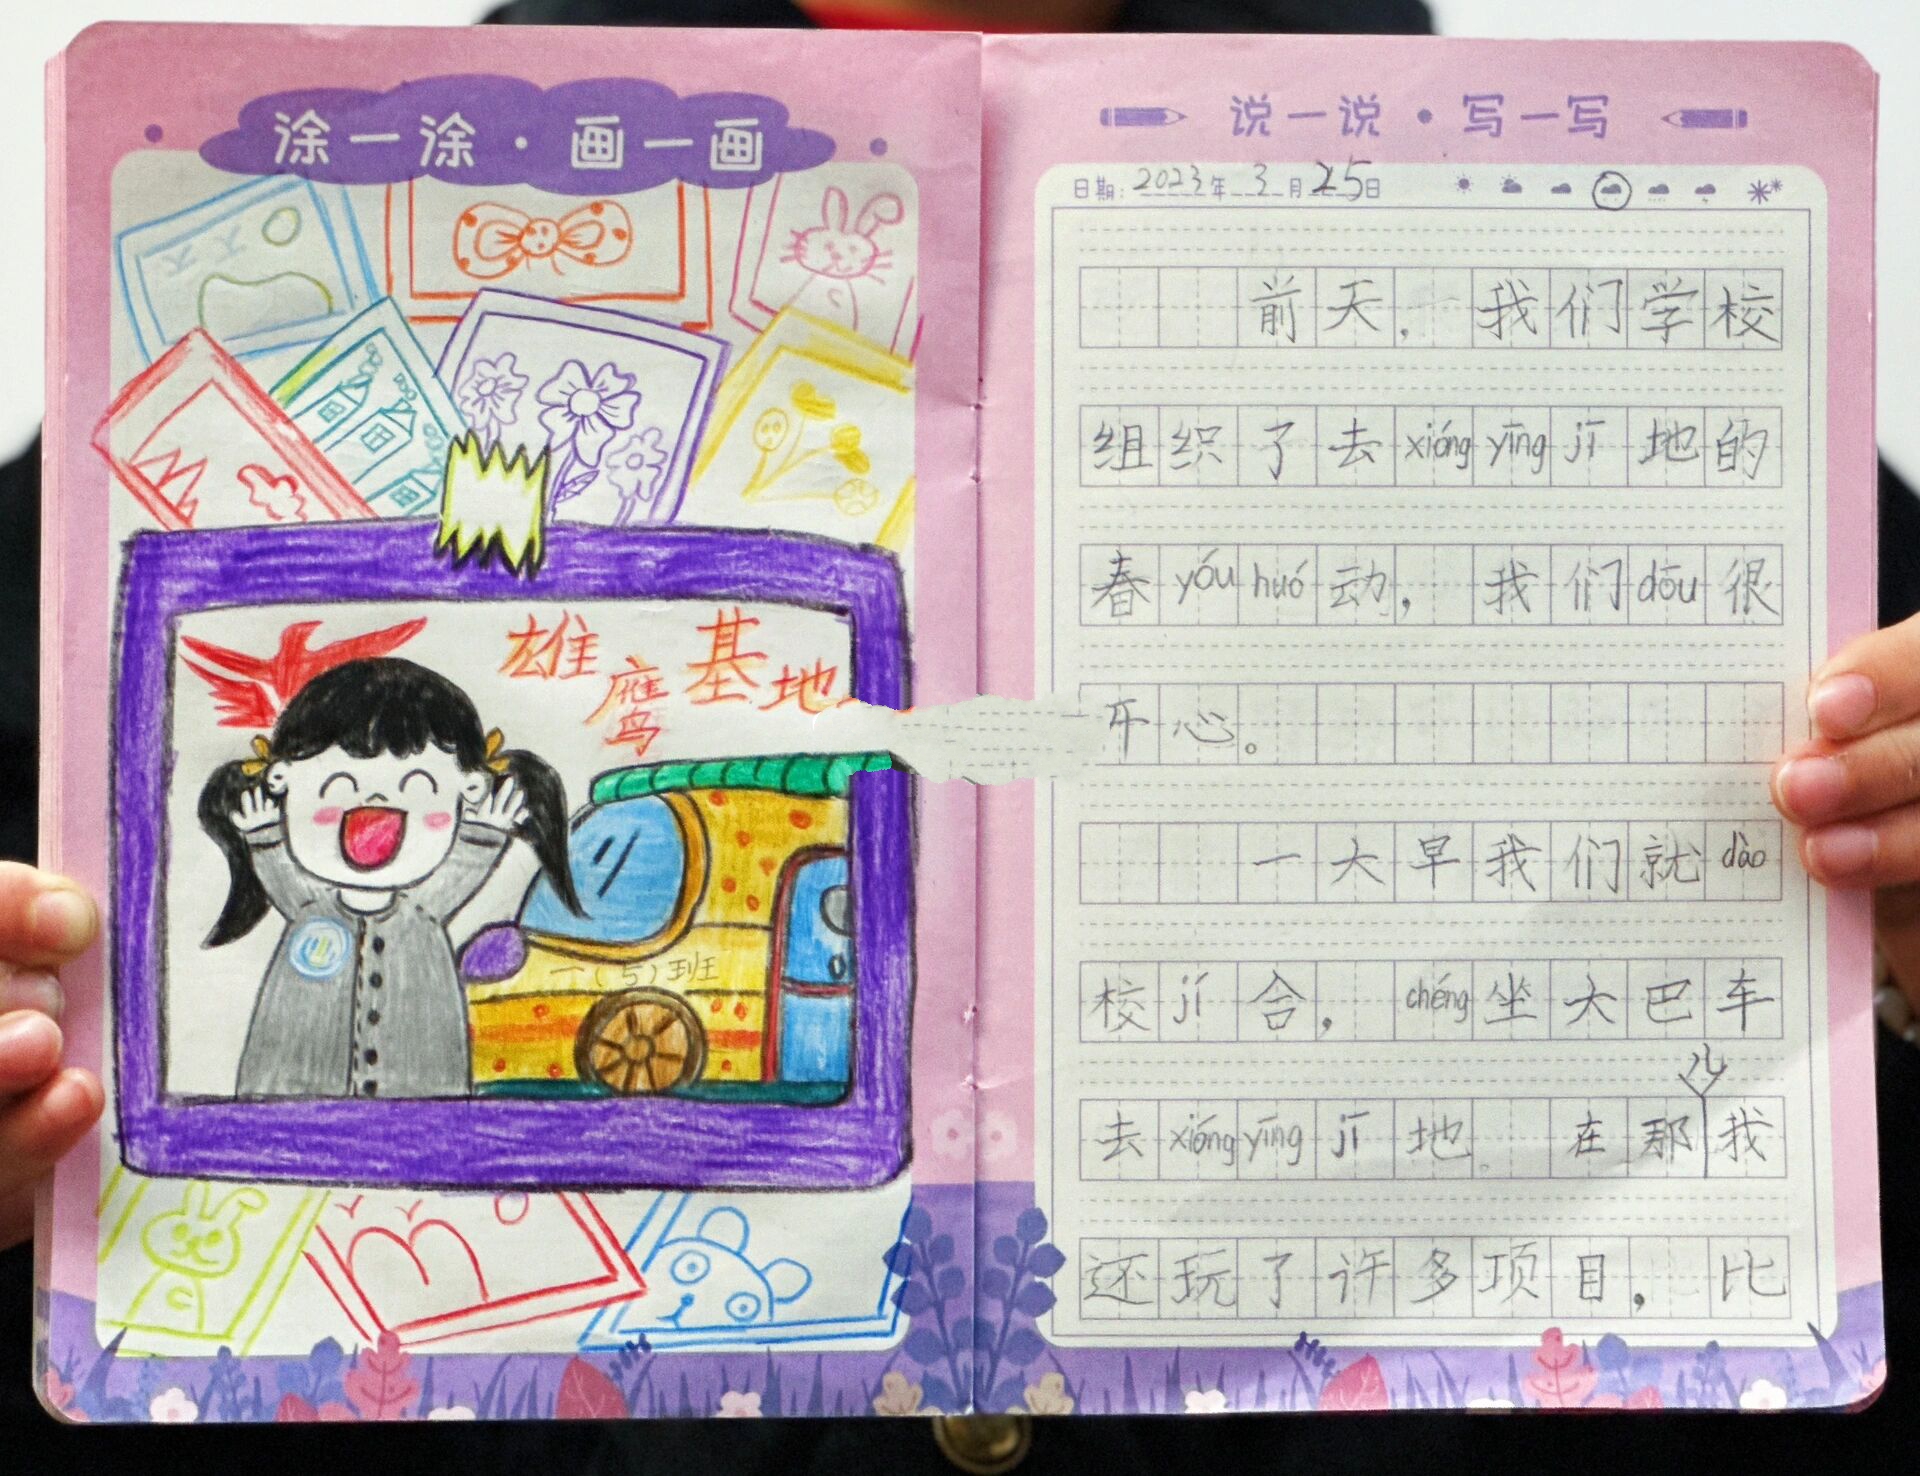 涂一涂·画一画
雄鹰基地
一(5)班
说一说·写一写
日期: 2023年 3月25日
前天，我们学校
组织了去xióng yīng jī地的
春yóu huó动，我们dōu很
开心。
一大早我们就dào
校jí合，chéng坐大巴车
去xióng yīng jī地。在那儿我
还玩了许多项目，比